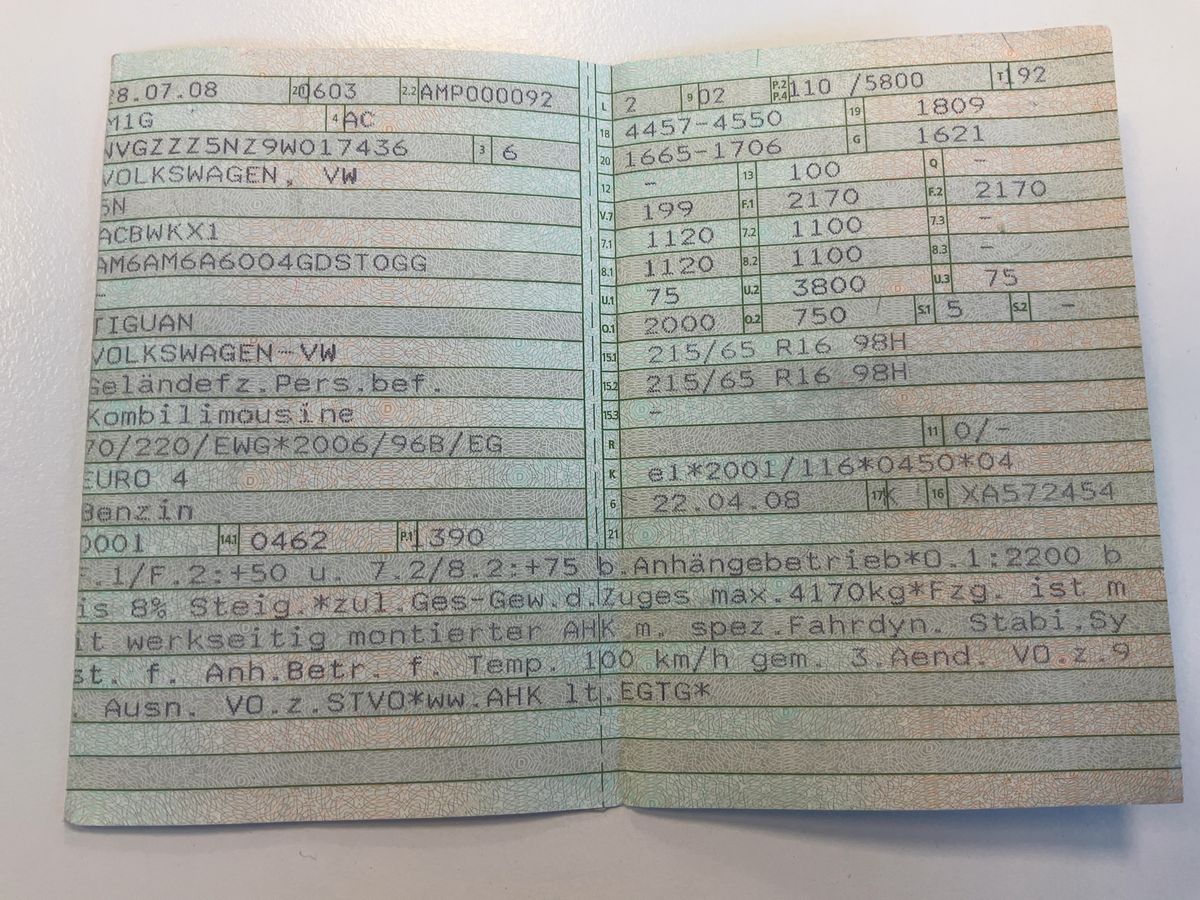 28.07.08 2.1 0603 2.2 AMP000092
M1G 4 AC
WVGZZZ5NZ9W017436 3 6
VOLKSWAGEN, VW
5N
ACBWKX1
AM6AM6A6004GDST0GG
-
TIGUAN
VOLKSWAGEN-VW
Geländefz.Pers.bef.
Kombilimousine
70/220/EWG*2006/96B/EG
EURO 4
Benzin
0001 14.1 0462 P.1 1390
L 2 9 02 P.2 P.4 110 /5800 T 192
18 4457-4550 19 1809
20 1665-1706 G 1621
12 - 13 100 Q -
V.7 199 F.1 2170 F.2 2170
7.1 1120 7.2 1100 7.3 -
8.1 1120 8.2 1100 8.3 -
U.1 75 U.2 3800 U.3 75
O.1 2000 O.2 750 S.1 5 S.2 -
15.1 215/65 R16 98H
15.2 215/65 R16 98H
15.3 -
R 11 0/-
K e1*2001/116*0450*04
6 22.04.08 17 K 16 XA572454
21
F.1/F.2:+50 u. 7.2/8.2:+75 b.Anhängebetrieb*O.1:2200 b
is 8% Steig.*zul.Ges-Gew.d.Zuges max.4170kg*Fzg. ist m
it werkseitig montierter AHK m. spez.Fahrdyn. Stabi.Sy
st. f. Anh.Betr. f. Temp. 100 km/h gem. 3.Aend. VO.z.9
. Ausn. VO.z.STVO*ww.AHK lt.EGTG*